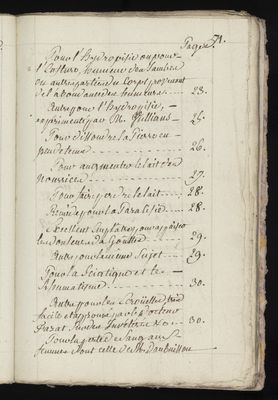 Pages. 71.
Pour l'Hydropisie ou pour
l'Enflure, humeur des Jambes
ou autre partie du Corps provenant
de l'abondance des humeurs ---- 23.
Autre pour l'Hydropisie, -
expérimentée par M. ---- 25.
Pour dissoudre la Pierre en
peu de tems ---- 26.
Pour augmenter le lait des
Nourrices ---- 27.
Pour faire perdre le lait ---- 28.
Remède pour la Paralisie ---- 28.
Excellent Emplatre pour appaiser
les douleurs de la Goutte ---- 29.
Autre pour le même Sujet ---- 29.
Pour la Sciatique et le -
Rhumatisme ---- 30.
Autre pour les Ecrouelles, très
facile et approuvé par le Docteur
---- 30.
Pour la perte de Sang aux
femmes